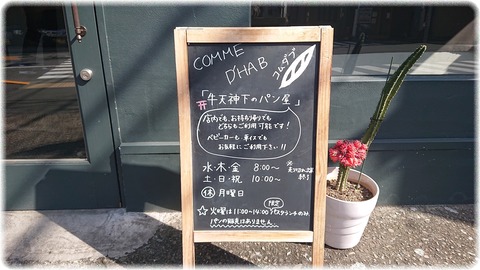 COMME
D'HAB
コムダブ
「牛天神下のパン屋」
店内でも、お持ち帰りでも
どちらもご利用可能です!
ベビーカーも、車イスでも
お気軽にご利用下さい!!
水・木・金 8:00〜
土・日・祝 10:00〜
※売り切れ次第終了
休 月曜日
限定
☆火曜は11:00〜14:00 ランチのみ
パンの販売はありません